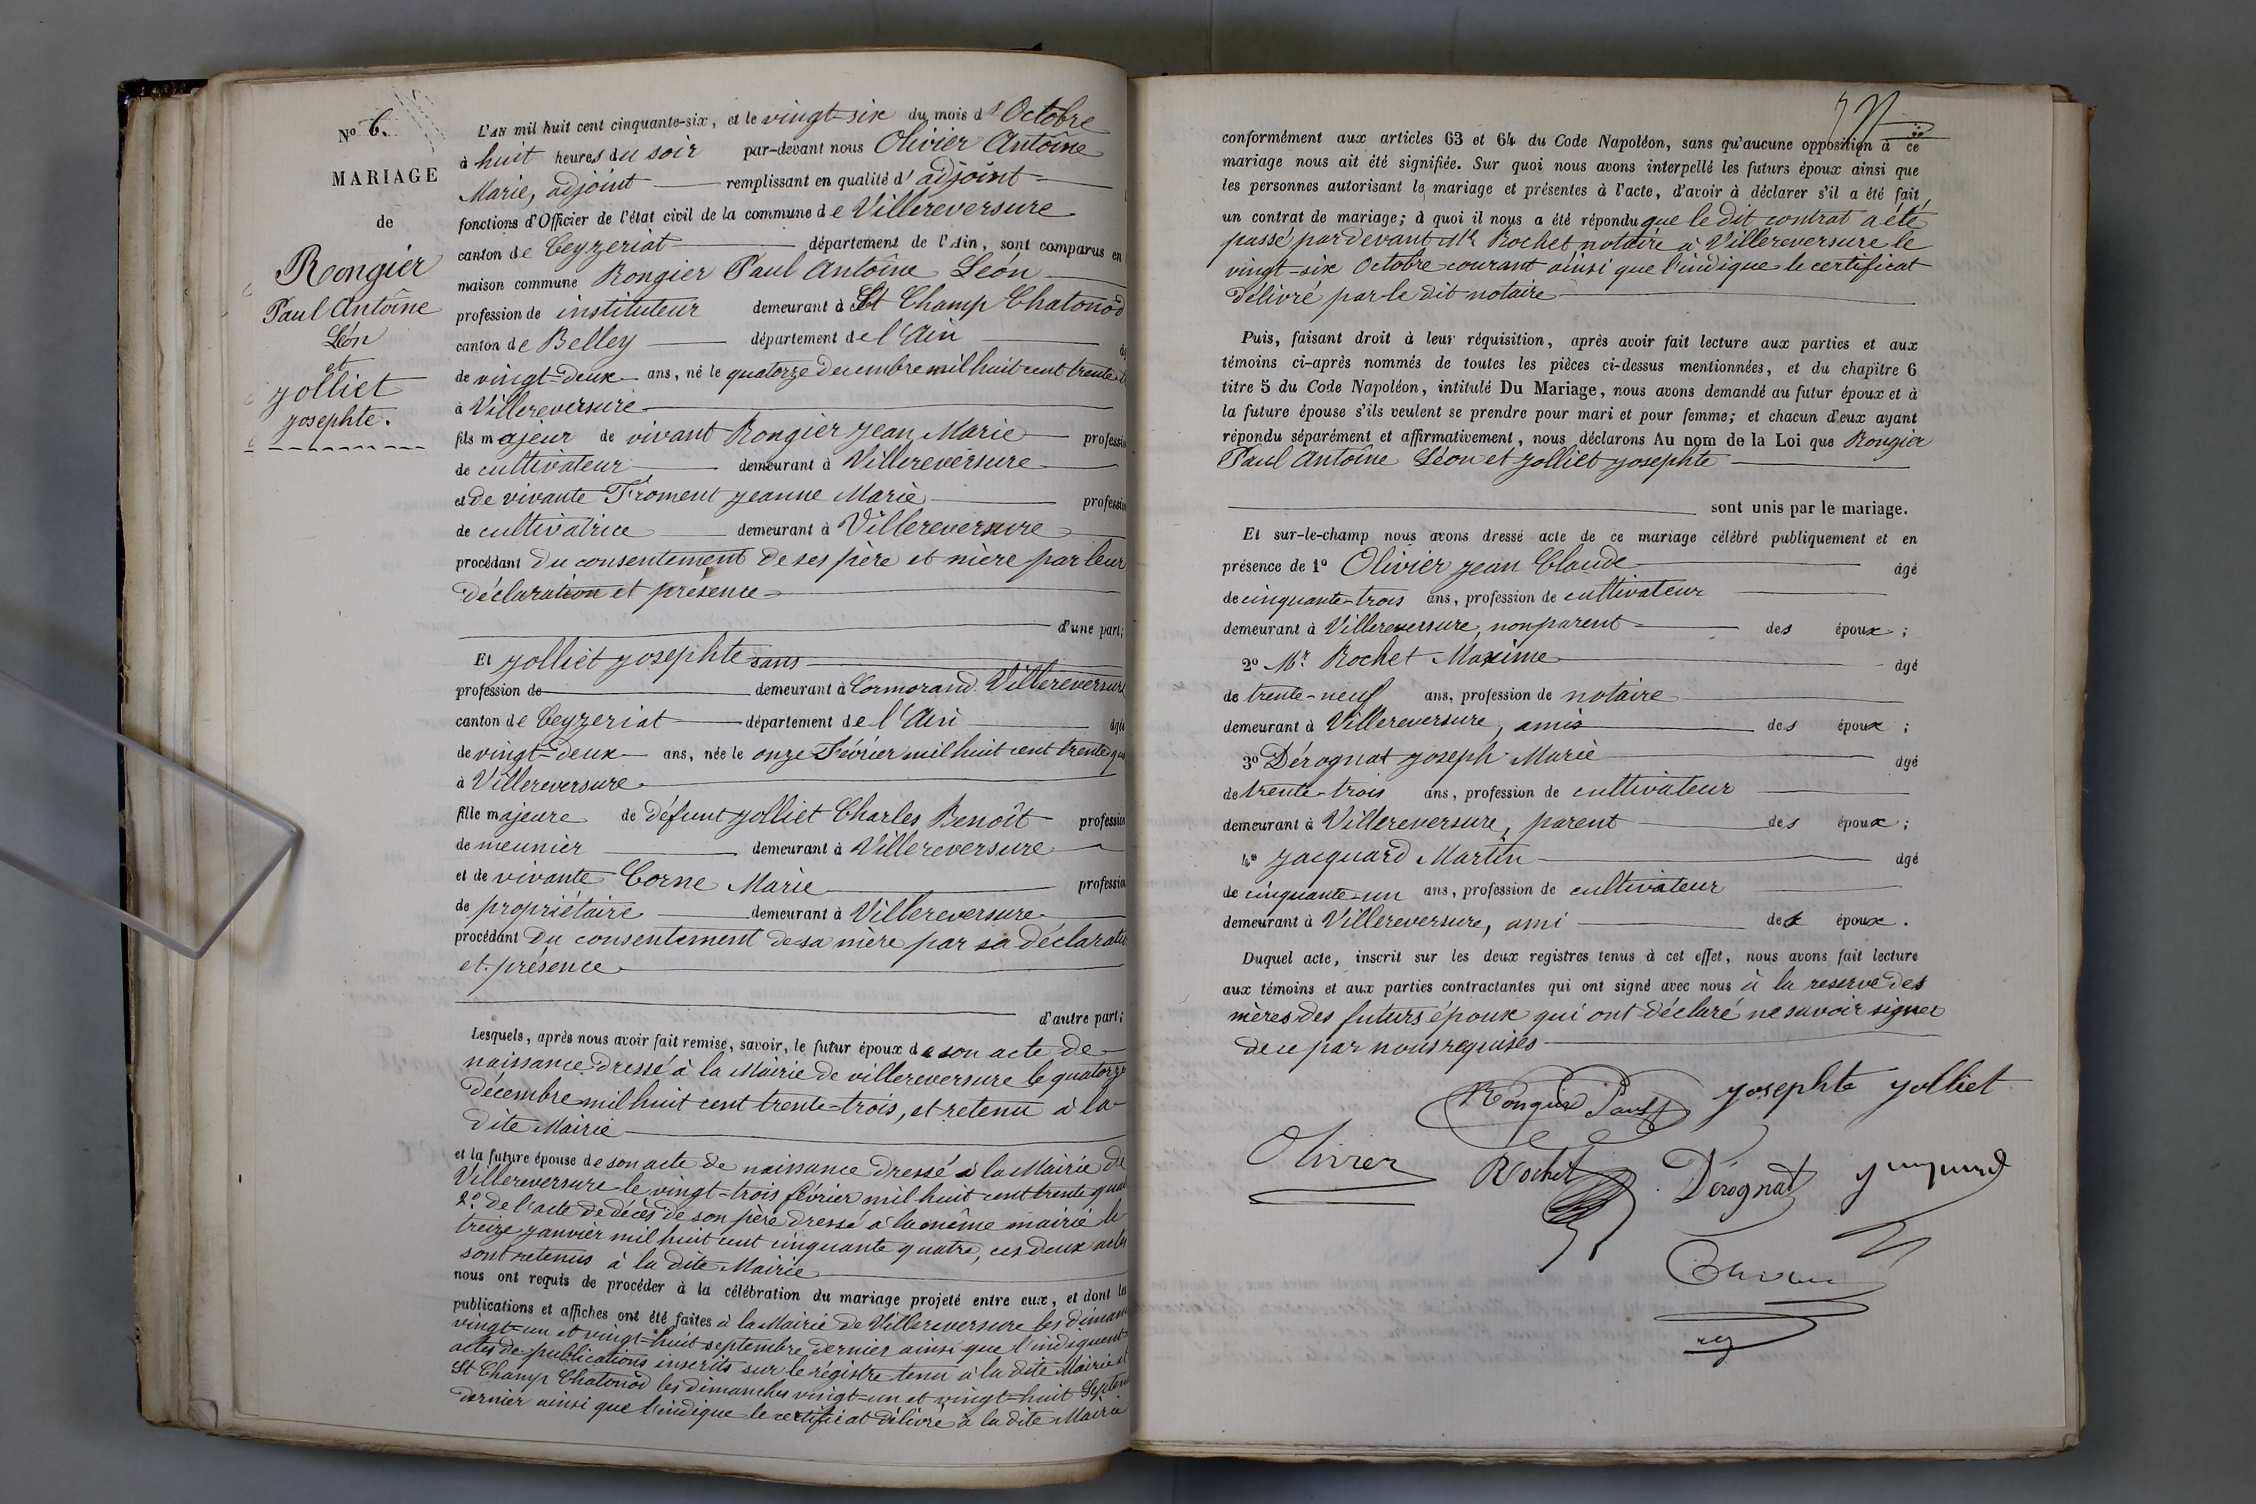 No 6.
MARIAGE
de
Rongier
Paul Antoine
Léon
et
Jolliet
Josephte.
L'AN mil huit cent cinquante-six, et le vingt-six du mois d'Octobre
à huit heures du soir par-devant nous Olivier Antoine
Marie, adjoint remplissant en qualité d'adjoint
fonctions d'Officier de l'état civil de la commune de Villereversure
canton de Ceyzeriat département de l'Ain, sont comparus en
maison commune Rongier Paul Antoine Léon
profession de instituteur demeurant à St Champ Chatonod
canton de Belley département de l'Ain
de vingt-deux ans, né le quatorze decembre mil huit cent trente
à Villereversure
fils majeur de vivant Rongier Jean Marie profession
de cultivateur demeurant à Villereversure
et de vivante Froment Jeanne Marie profession
de cultivatrice demeurant à Villereversure
procédant du consentement de ses père et mère par leur
déclaration et présence
d'une part;
Et Jolliet Josephte sans
profession de demeurant à Cormorand Villereversure
canton de Ceyzeriat département de l'Ain âgée
de vingt-deux ans, née le onze Février mil huit cent trente
à Villereversure
fille majeure de défunt Jolliet Charles Benoît profession
de meunier demeurant à Villereversure
et de vivante Corne Marie profession
de propriétaire demeurant à Villereversure
procédant du consentement de sa mère par sa déclaration
et présence
d'autre part;
Lesquels, après nous avoir fait remise, savoir, le futur époux de son acte de
naissance dressé à la Mairie de villereversure le quatorze
décembre mil huit cent trente-trois, et retenu à la
dite Mairie
et la future épouse de son acte de naissance dressé à la Mairie de
Villereversure le vingt-trois février mil huit cent trente
2º. de l'acte de décès de son père dressé à la même mairie le
treize Janvier mil huit cent cinquante quatre, ces deux actes
sont retenus à la dite Mairie
nous ont requis de procéder à la célébration du mariage projeté entre eux, et dont les
publications et affiches ont été faites à la Mairie de Villereversure les
vingt-un et vingt-huit septembre dernier ainsi que l'indiquent
actes de publications inscrits sur le régistre tenu à la dite Mairie et
St Champ Chatonod les dimanches vingt-un et vingt-huit Septembre
dernier ainsi que l'indique le certificat délivré à la dite Mairie
conformément aux articles 63 et 64 du Code Napoléon, sans qu'aucune opposition à ce
mariage nous ait été signifiée. Sur quoi nous avons interpellé les futurs époux ainsi que
les personnes autorisant le mariage et présentes à l'acte, d'avoir à déclarer s'il a été fait
un contrat de mariage; à quoi il nous a été répondu que le dit contrat a été
passé par devant Mr Rochet notaire à Villereversure le
vingt-six Octobre courant ainsi que l'indique le certificat
délivré par le dit notaire
Puis, faisant droit à leur réquisition, après avoir fait lecture aux parties et aux
témoins ci-après nommés de toutes les pièces ci-dessus mentionnées, et du chapitre 6
titre 5 du Code Napoléon, intitulé Du Mariage, nous avons demandé au futur époux et à
la future épouse s'ils veulent se prendre pour mari et pour femme; et chacun d'eux ayant
répondu séparément et affirmativement, nous déclarons Au nom de la Loi que Rongier
Paul Antoine Léon et Jolliet Josephte
sont unis par le mariage.
Et sur-le-champ nous avons dressé acte de ce mariage célébré publiquement et en
présence de 1º Olivier Jean Claude âgé
de cinquante-trois ans, profession de cultivateur
demeurant à Villereversure, non parent des époux;
2º Mr. Rochet Maxime âgé
de trente-neuf ans, profession de notaire
demeurant à Villereversure, amis des époux;
3º Dérognat Joseph Marie âgé
de trente-trois ans, profession de cultivateur
demeurant à Villereversure, parent des époux;
4º Jacquard Martin âgé
de cinquante-un ans, profession de cultivateur
demeurant à Villereversure, ami des époux.
Duquel acte, inscrit sur les deux registres tenus à cet effet, nous avons fait lecture
aux témoins et aux parties contractantes qui ont signé avec nous à la reserve des
mères des futurs époux qui ont déclaré ne savoir signer
de ce par nous requises
Rongier Paul Josephte Jolliet
Olivier Rochet Dérognat Jacquard
Olivier